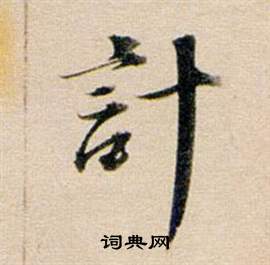 計
词典网